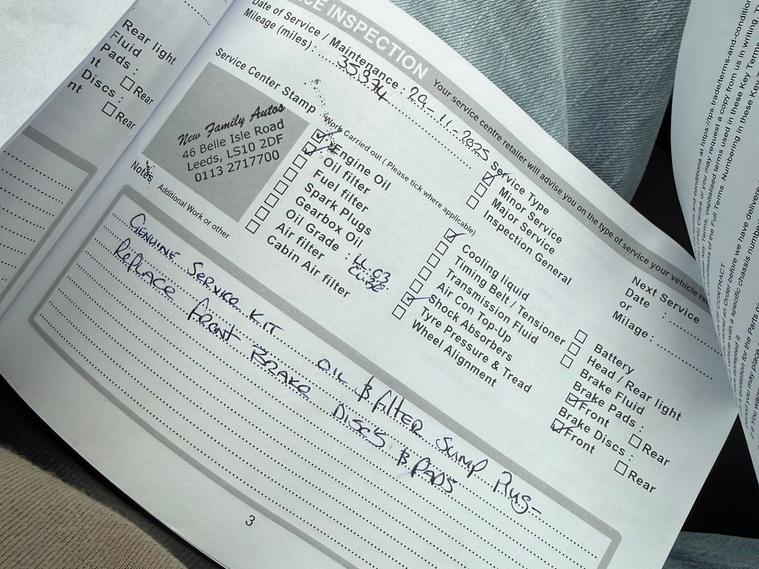 Rear light
Fluid
Pads :
Rear
Discs :
Rear
INSPECTION
Your service centre retailer will advise you on the type of service your vehicle
Date of Service / Maintenance : 29-11-2025
Mileage (miles) : 35374
Service Center Stamp
New Family Autos
46 Belle Isle Road
Leeds, LS10 2DF
0113 2717700
Work Carried out ( Please tick where applicable)
Engine Oil
Oil filter
Fuel filter
Spark Plugs
Gearbox Oil
Oil Grade :
Air filter
Cabin Air filter
Service Type
Minor Service
Major Service
Inspection General
Cooling liquid
Timing Belt / Tensioner
Transmission Fluid
Air Con Top-Up
Shock Absorbers
Tyre Pressure & Tread
Wheel Alignment
Next Service
Date :
or
Mileage :
Battery
Head / Rear light
Brake Fluid
Brake Pads :
Front Rear
Brake Discs :
Front Rear
Notes
Additional Work or other
GENUINE SERVICE KIT OIL & FILTER SUMP PLUG-
REPLACE FRONT BRAKE DISCS & PADS
3